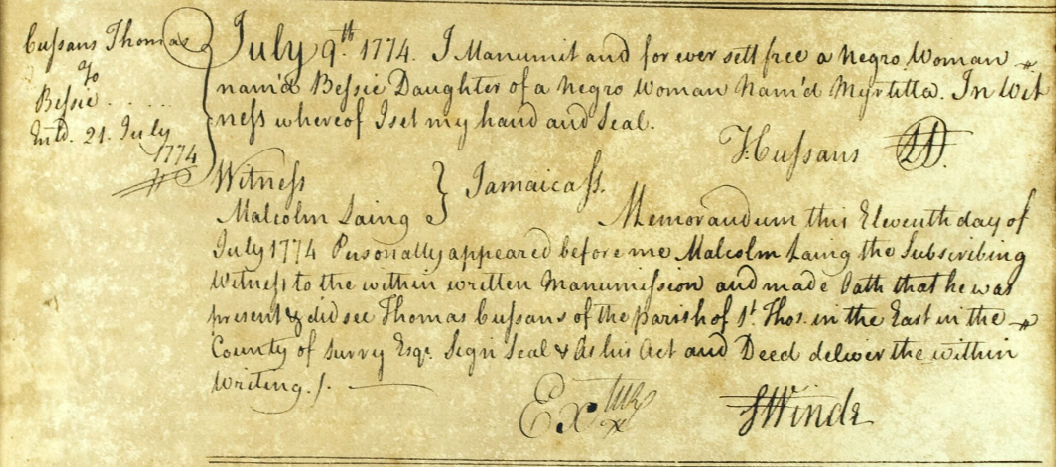 Cussans Thomas
To
Bessie . . . . .
Entd. 21. July
1774
July 9th. 1774. I Manumit and for ever sett free a Negro Woman
nam'd Bessie Daughter of a Negro Woman Nam'd Myrtilla. In Wit
ness whereof I set my hand and Seal.
Cussans
Witness
Malcolm Laing } Jamaica ss.
Memorandum this Eleventh day of
July 1774 Personally appeared before me Malcolm Laing the Subscribing
Witness to the within written Manumission and made Oath that he was
present & did see Thomas Cussans of the parish of St. Thos. in the East in the
County of Surry Esqr. Sign Seal & As his Act and Deed deliver the within
Writing ./.
Exr
Winde